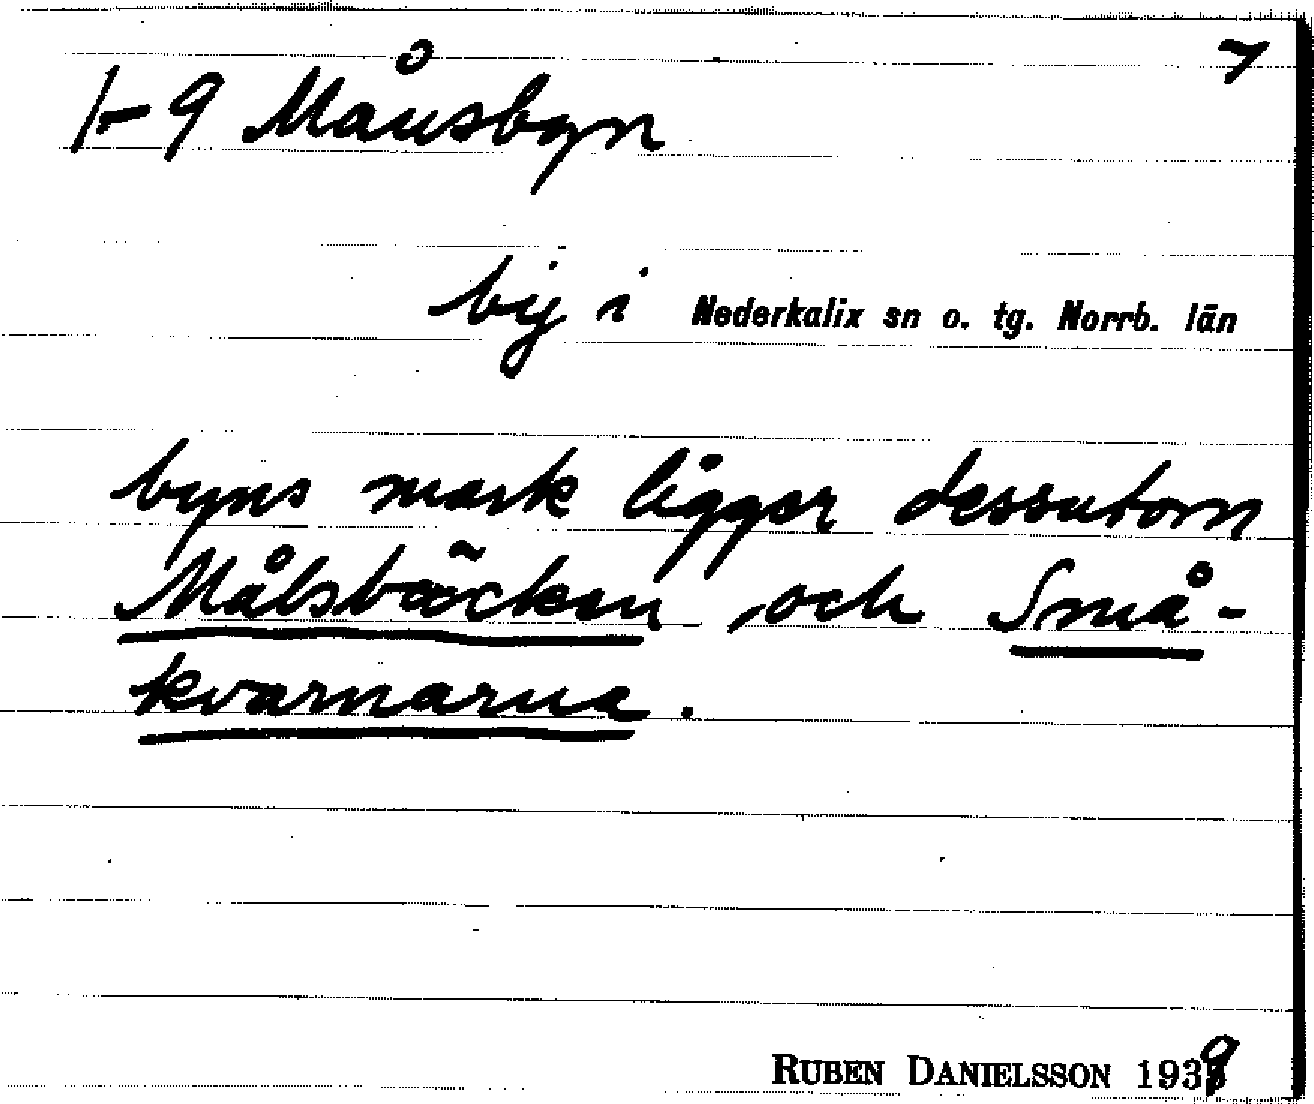 7
1-9 Månsbyn
by i Nederkalix sn o. tg. Norrb. län
byns mark ligger dessutom
Målsbäcken, och Små-
kvarnarna.
RUBEN DANIELSSON 1939